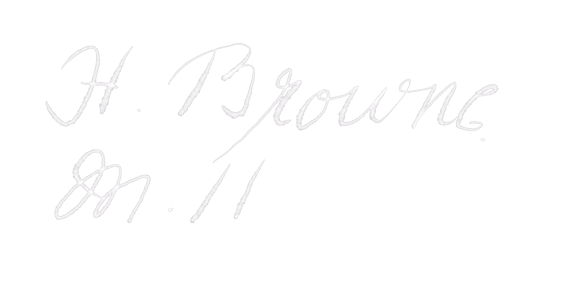 H. Browne
M. 11